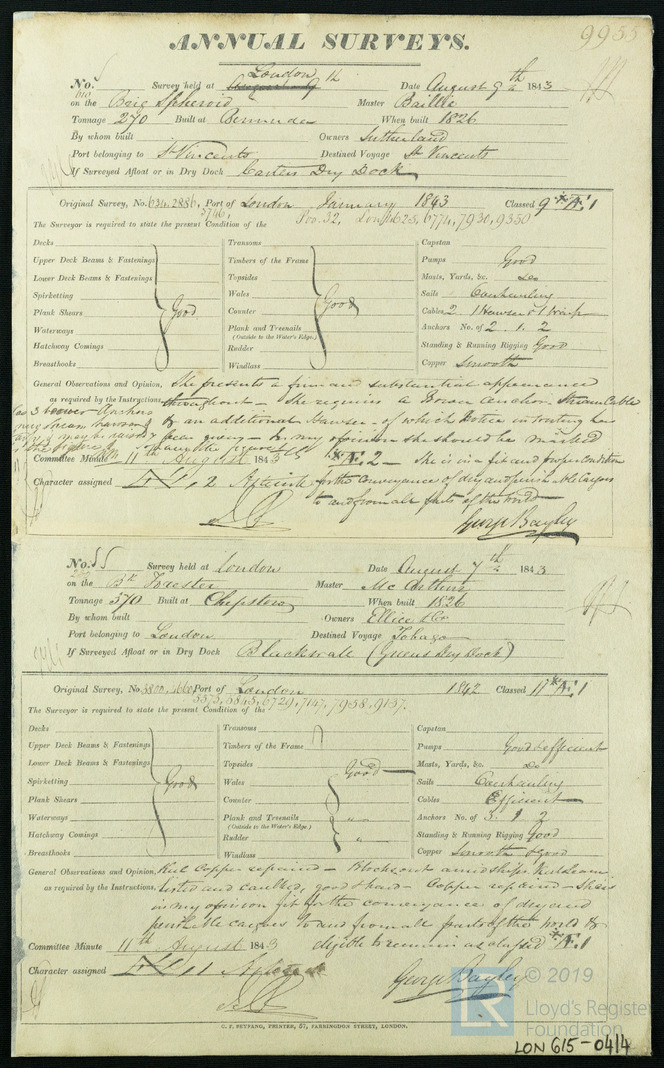 9955
ANNUAL SURVEYS.
No. Survey held at London Date August 9th 1843
on the Brig Spheroid Master Baillie
Tonnage 270 Built at Bermuda When built 1826
By whom built Owners Sutherland
Port belonging to St Vincents Destined Voyage St Vincents
If Surveyed Afloat or in Dry Dock Carters Dry Dock
Original Survey, No. 634, 2886, Port of London January 1843 Classed 9 A.1
5746, Pro. 32, Lon 625, 6774, 7930, 9350
The Surveyor is required to state the present Condition of the
Decks
Upper Deck Beams & Fastenings
Lower Deck Beams & Fastenings
Spirketting
Plank Shears
Waterways
Hatchway Comings
Breasthooks
Good
Transoms
Timbers of the Frame
Topsides
Wales
Counter
Plank and Treenails
(Outside to the Water's Edge.)
Rudder
Windlass
Good
Capstan
Pumps Good
Masts, Yards, &c. Do
Sails
Cables 2 1 Hawser & 1
Anchors No. of 2. 1. 2
Standing & Running Rigging Good
Copper Smooth
General Observations and Opinion, She presents a firm and substantial appearance
as required by the Instructions, throughout - She requires a Bower Anchor Stream Cable
& an additional Hawser - of which Notice in writing has
been given - In my opinion she should be marked
Committee Minute 11th August 1843 A.2 - She is in a fit and proper condition
Character assigned 2 for the conveyance of dry and perishable cargoes
to and from all parts of the World
George Bayley
No. 55 Survey held at London Date August 7th 1843
on the Bk Forester Master Mc Arthur
Tonnage 370 Built at Chepstow When built 1826
By whom built Owners Ellice & Co
Port belonging to London Destined Voyage Tobago
If Surveyed Afloat or in Dry Dock Blackwall (Greens Dry Dock)
Original Survey, No. 3800, 1660 Port of London 1842 Classed 11 A.1
5575, 5845, 6729, 7147, 7958, 9157.
The Surveyor is required to state the present Condition of the
Decks
Upper Deck Beams & Fastenings
Lower Deck Beams & Fastenings
Spirketting
Plank Shears
Waterways
Hatchway Comings
Breasthooks
Good
Transoms
Timbers of the Frame
Topsides
Wales
Counter
Plank and Treenails
(Outside to the Water's Edge.)
Rudder
Windlass
Good
Capstan
Pumps Good & efficient
Masts, Yards, &c. Do
Sails
Cables Efficient
Anchors No. of 3. 1 2
Standing & Running Rigging Good
Copper Smooth & Good
General Observations and Opinion, Keel Copper repaired - Blocks out amidships Keel seams
as required by the Instructions, tested and caulked, good & hard - Copper repaired - She is
in my opinion fit for the conveyance of dry and
perishable cargoes to and from all parts of the World &
Committee Minute 11th August 1843 eligible to remain as classed A.1
Character assigned 11
George Bayley
C. F. SEYFANG, PRINTER, 57, FARRINGDON STREET, LONDON.
LR © 2019
Lloyd's Register
Foundation
LON 615-0414